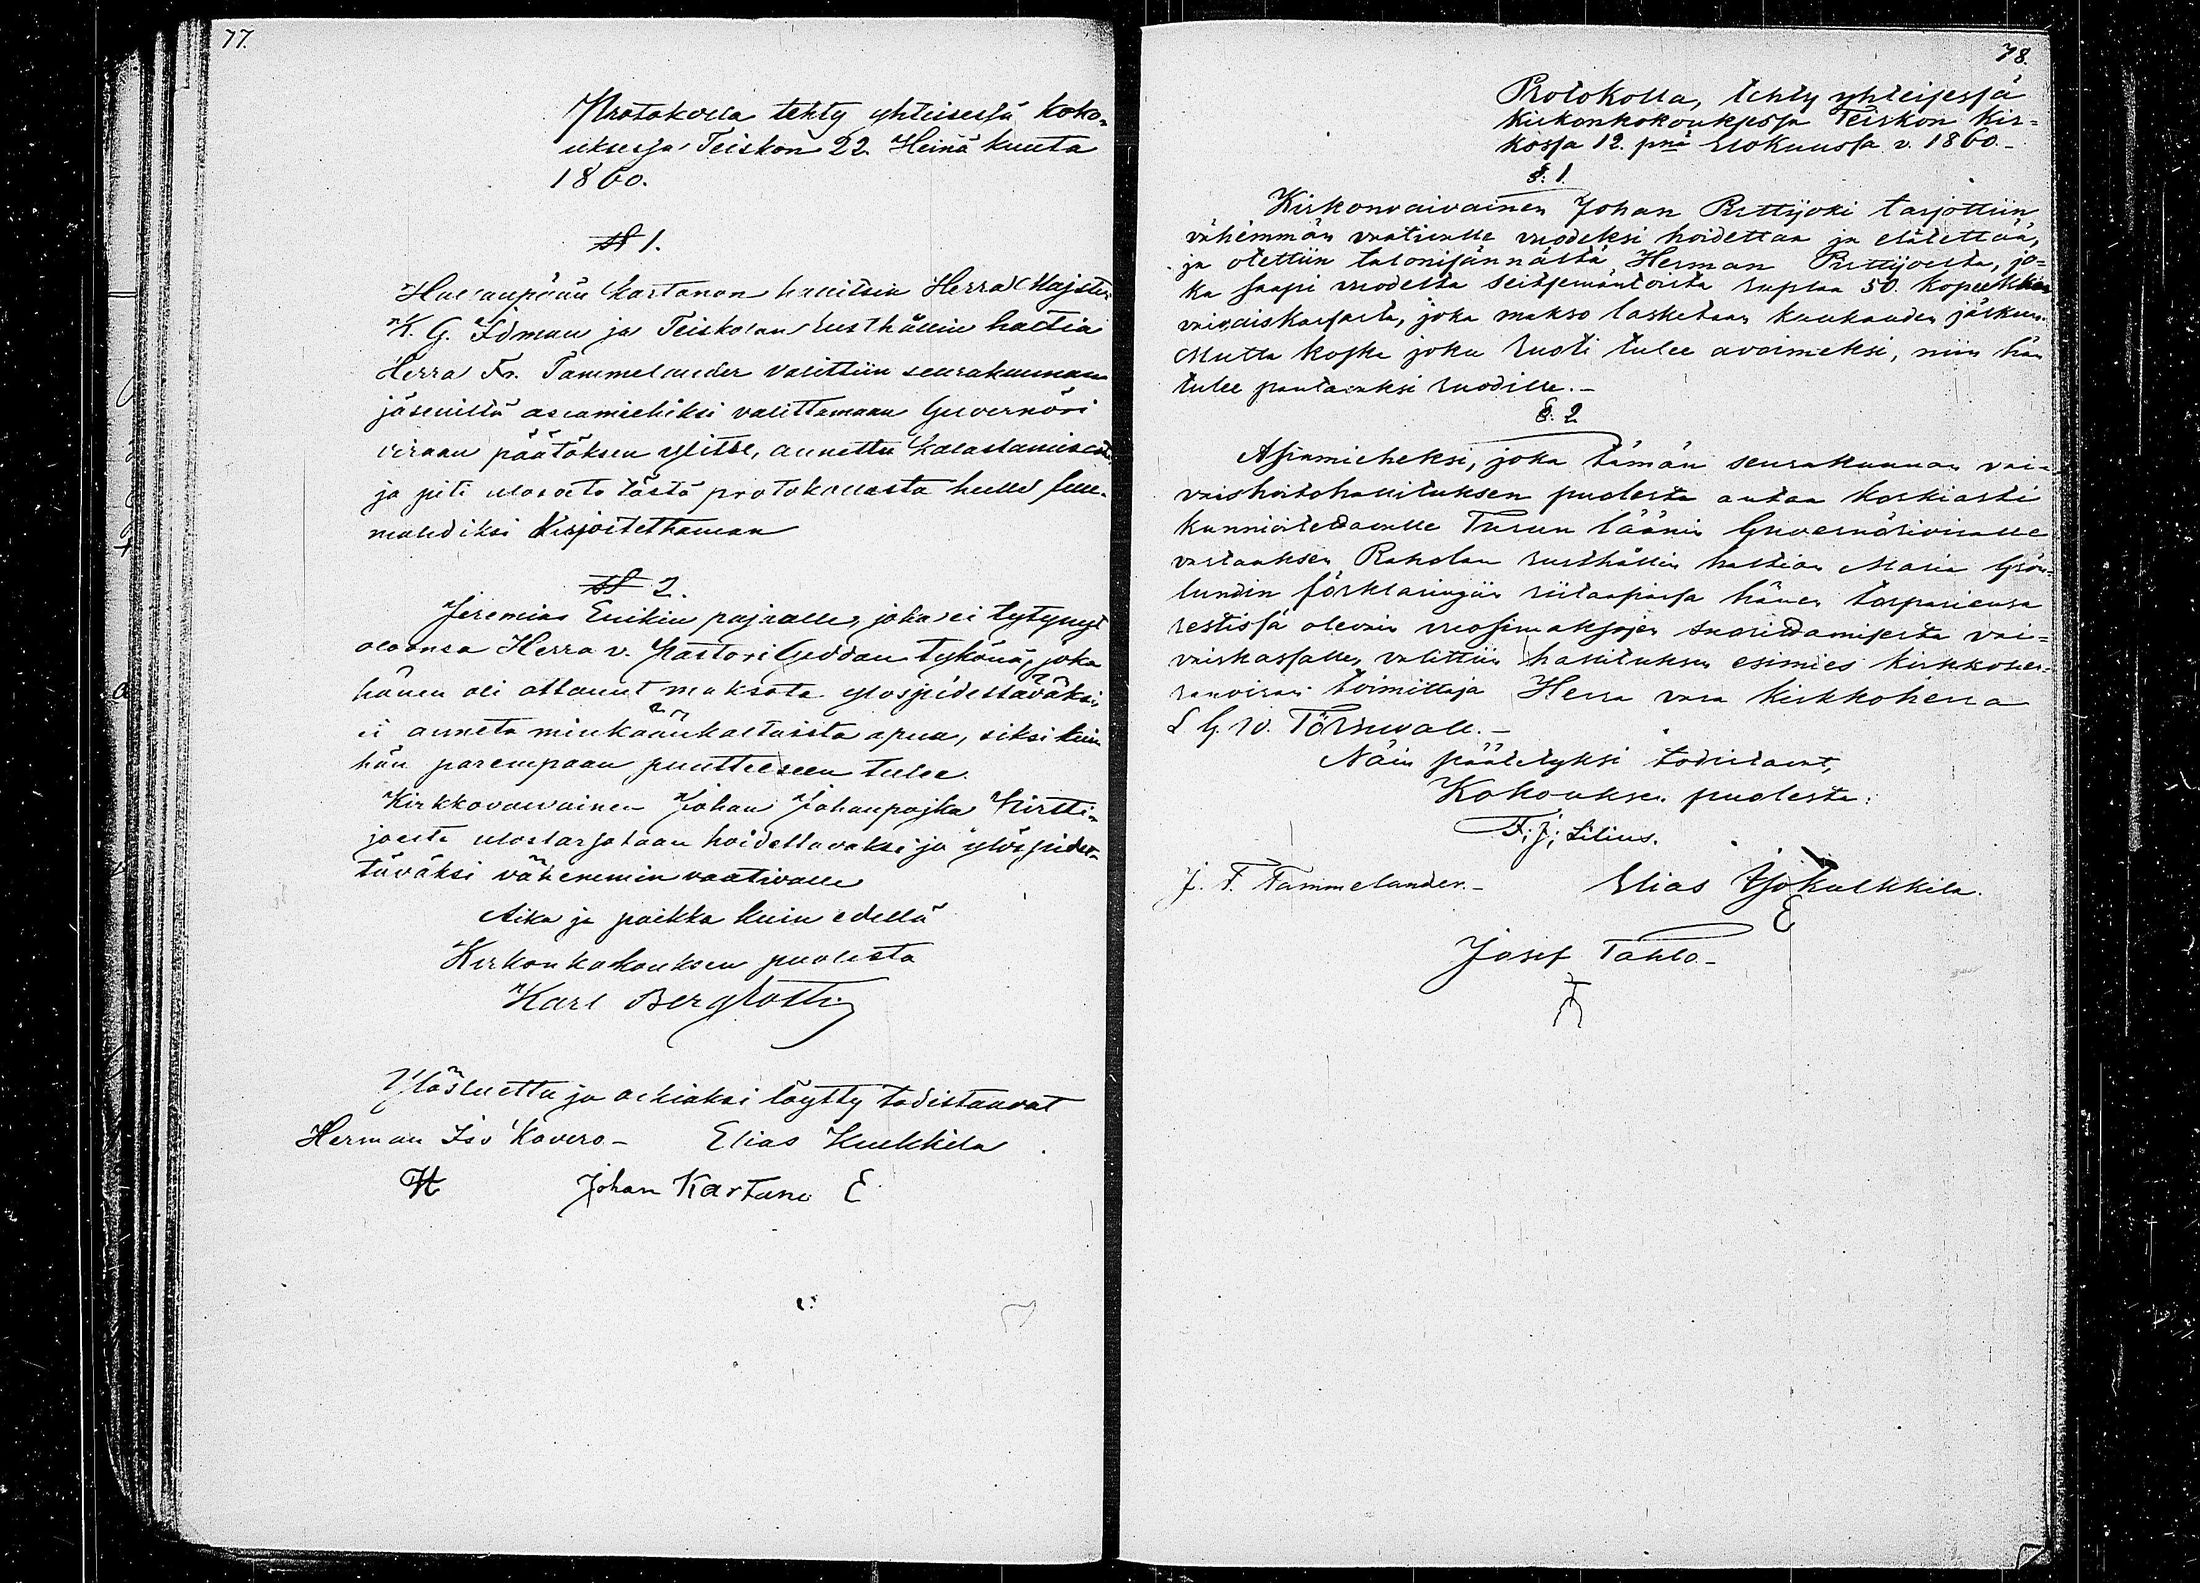 77.
Protokolla tehty yhteisessä koko-
uksessa Teiskon 22. Heinä kuuta
1860.
§ 1.
kartanon hallitsia Herra Majste
K. G. Idman ja Teiskolan Rusthållin haltia
Herra Fr. Tammelander valittiin seurakunnan
jäseniltä asiamiehiksi valittamaan Guvernöri
viraan päätöksen ylitse, annettu kalastamisesta,
ja piti uloso to tästä protokollasta heille full-
mahdiksi kirjoitettaman
§ 2.
Jeremias Enikin pajialle, joka ei tytynyt
oloonsa Herra v. Pastori Geddan tykönä, joka
hänen oli ottanut maksota ylöspidettäväksi,
ei anneta minkäänkaltaista apua, siksi kuin
hän parempaan puutteeseen tulee.
Kirkkovaivainen Johan Johanpojka Pirtti-
joelta ulostarjotaan hoidettavaksi ja ylöspidet-
täväksi vähemmin vaativalle
Aika ja paikka kuin edellä
Kirkonkokouksen puolesta
Karl Bergrotti
Ylösluettu ja oekiaksi löytty todistaavat
Herman Iso Kovero - Elias Kulkkila
H Johan Kartano E
78.
Protokolla, tehty yhteisessä
kirkonkokouksessa Teiskon Kir=
kossa 12. pnä Elokuussa v. 1860.-
§. 1.
Kirkonvaivainen Johan Pirttijoki tarjottiin
vähemmän vaativalle vuodeksi hoidettaa ja elätettää,
ja otettiin talonisännältä Herman Pirttijoelta, jo=
ka saapi vuodelta seitsemäntoista ruplaa 50. kopeekkaa
vaivaiskassasta, joka makso lasketaan kuukauden jälkeen.
Mutta koska joku ruoti tulee avoimeksi, niin hän
tulee pantavaksi ruodille.-
§. 2
Asiamieheksi, joka tämän seurakunnan vai-
vaishoitohallituksen puolesta antaa korkiasti
kunnioitettavalle Turun läänin Guvernöriviralle
vastauksen Rakolan rusthållin haltian Maria Grön-
lundin förklaringiin riitaasiassa hänen torpariensa
restissä olevain vuosimaksojen suorittamisesta vai=
vaiskassalle, valittiin hallituksen esimies kirkkoher-
ranviran toimittaja Herra vara kirkkoherra
L G. W. Törnwall.-
Näin päätetyksi todistavat,
Kokouksen puolesta:
F; J; Lilius.
J. F. Tammelander.- Elias Kulkkila.
E
Josef Tahlo.-